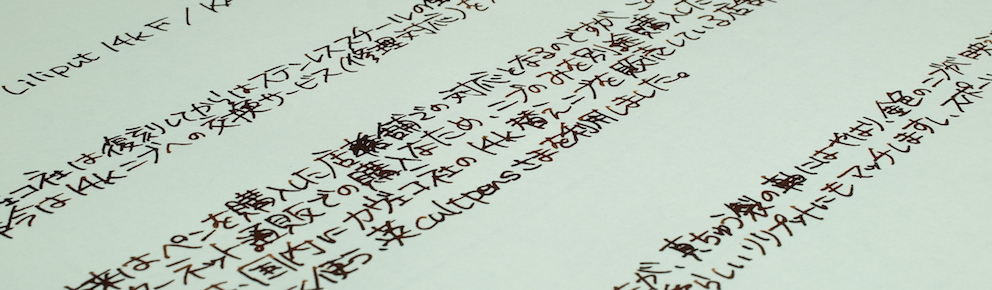 Liliput 14k F / Ka
ェコ社は復刻してからはステンレススチールの
今は14kニブへの交換サービス(修理対応)を
来はペンを購入した店舗での対応となるのですが、こ
ネット通販での購入なため、ニブのみを別途購入した
国内ルートがカヴェコ社の14k替えニブを販売している店
く使う、英cultpensさまを利用しました。
が、真ちゅう製の軸にはやはり金色のニブが映
らしいリリプットにもマッチしますし、スペ